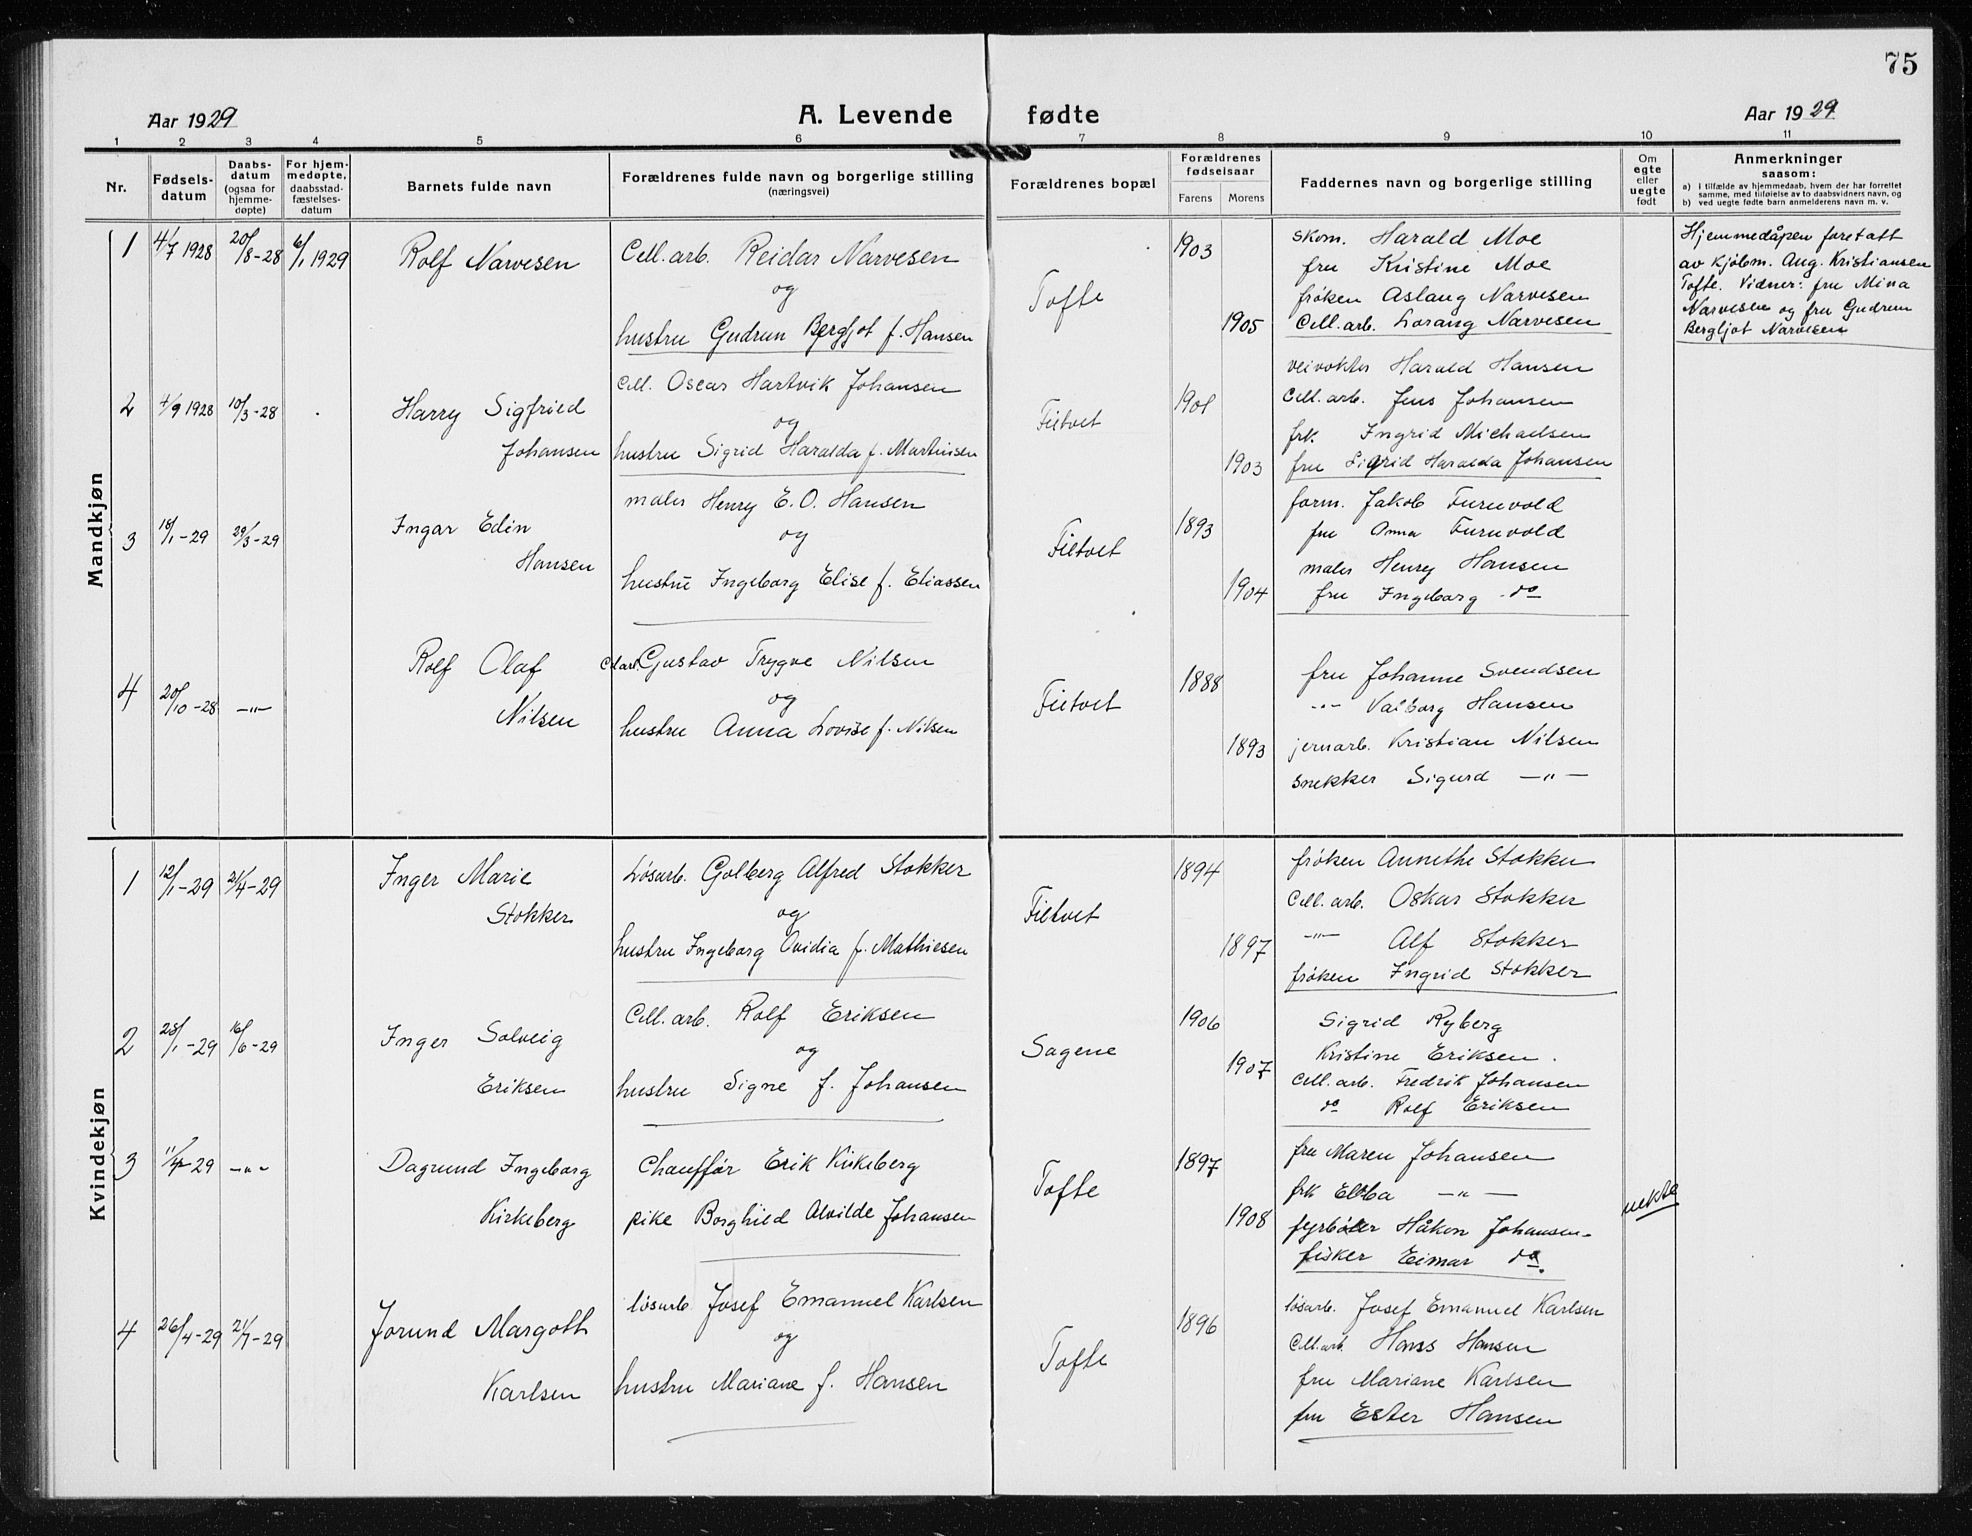 75
Aar 1929
A. Levende fødte
Aar 1929
1 2 3 4 5 6 7 8 9 10 11
Nr.
Fødsels-
datum
Daabs-
datum
(ogsaa for
hjemme-
døpte)
For hjem-
medøpte,
daabsstad-
fæstelses-
datum
Barnets fulde navn
Forældrenes fulde navn og borgerlige stilling
(næringsvei)
Forældrenes bopæl
Forældrenes
fødselsaar
Farens Morens
Faddernes navn og borgerlige stilling
Om
egte
eller
uegte
født
Anmerkninger
saasom:
a) i tilfælde av hjemmedaab, hvem der har forrettet
samme, med tilføielse av to daabsvidners navn, og
b) ved uegte fødte barn anmelderens navn m. v.
Mandkjøn
1 4/7 1928 20/8-28 6/1 1929
Rolf Narvesen
Cell. arb. Reidar Narvesen
og
hustru Gudrun Bergljot f. Hansen
Tofte
1903
1905
skom. Harald Moe
fru Kristine Moe
frøken Aslaug Narvesen
Cell. arb. Lorang Narvesen
Hjemmedåpen foretatt
av kjøbm. Aug. Kristiansen
Tofte. Vidner: fru Mina
Narvesen og fru Gudrun
Bergljot Narvesen
2 4/9 1928 10/3-28
Harry Sigfried
Johansen
Cell. Oscar Hartvik Johansen
og
hustru Sigrid Haralda f. Martinsen
Filtvet
1901
1903
veivokter Harald Hansen
Cell. arb. Jens Johansen
frk Ingrid Michaelsen
fru Sigrid Haralda Johansen
3 18/1-29 29/3-29
Ingar Edin
Hansen
maler Henry E. O. Hansen
og
hustru Ingeborg Elise f. Eliassen
Filtvet
1893
1904
form. Jakob Furuvold
fru Anna Furuvold
maler Henry Hansen
fru Ingeborg do
4 20/10-28 -"-
Rolf Olaf
Nilsen
C.l.arb. Gustav Trygve Nilsen
og
hustru Anna Lovise f. Nilsen
Filtvet
1888
1893
fru Johanne Svendsen
-"- Valborg Hansen
jernarb. Kristian Nilsen
snekker Sigurd -"-
Kvindekjøn
1 12/1-29 2/4-29
Inger Marie
Stokker
Løsarb. Golberg Alfred Stokker
og
hustru Ingeborg Ovidia f. Mathiesen
Filtvet
1894
1897
frøken Annethe Stokker
Cell. arb. Oskar Stokker
-"- Alf Stokker
frøken Ingrid Stokker
2 28/1-29 16/6-29
Inger Solveig
Eriksen
Cell. arb. Rolf Eriksen
og
hustru Signe f. Johansen
Sagene
1906
1907
Sigrid Ryberg
Kristine Eriksen.
Cell. arb. Fredrik Johansen
do Rolf Eriksen
3 11/4-29 -"-
Dagrund Ingeborg
Kirkeberg
Chauffør Erik Kirkeberg
pike Borghild Alvilde Johansen
Tofte
1897
1908
fru Maren Johansen
frk Ebba -"-
fyrbøter Håkon Johansen
fisker Eimar do.
uekte
4 26/4-29 21/7-29
Jorund Margoth
Karlsen
løsarb Josef Emanuel Karlsen
og
hustru Mariane f. Hansen
Tofte
1896
løsarb. Josef Emanuel Karlsen
Cell. arb. Hans Hansen
fru Mariane Karlsen
fru Ester Hansen